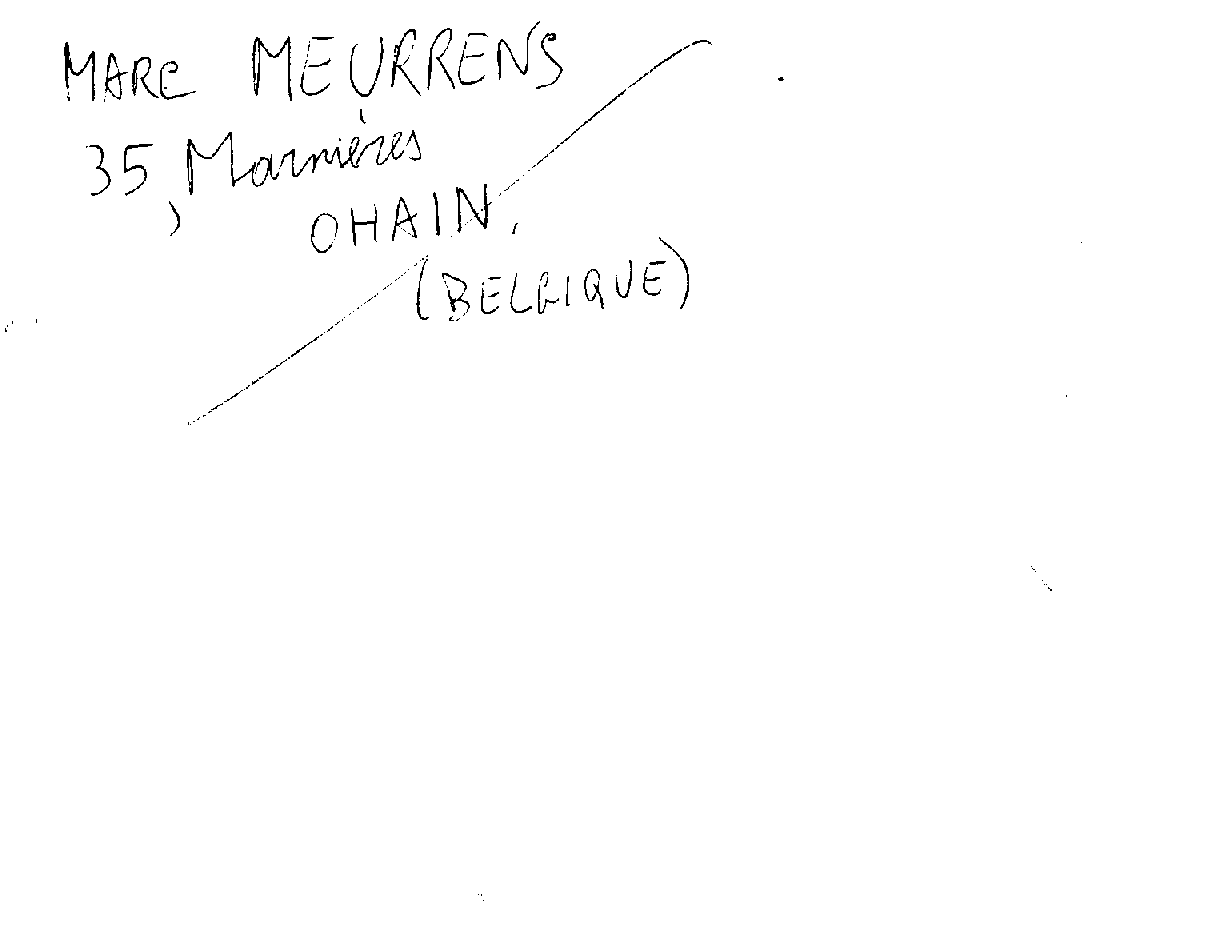 MARC MEURRENS
35, Marnières
OHAIN.
(BELGIQUE)